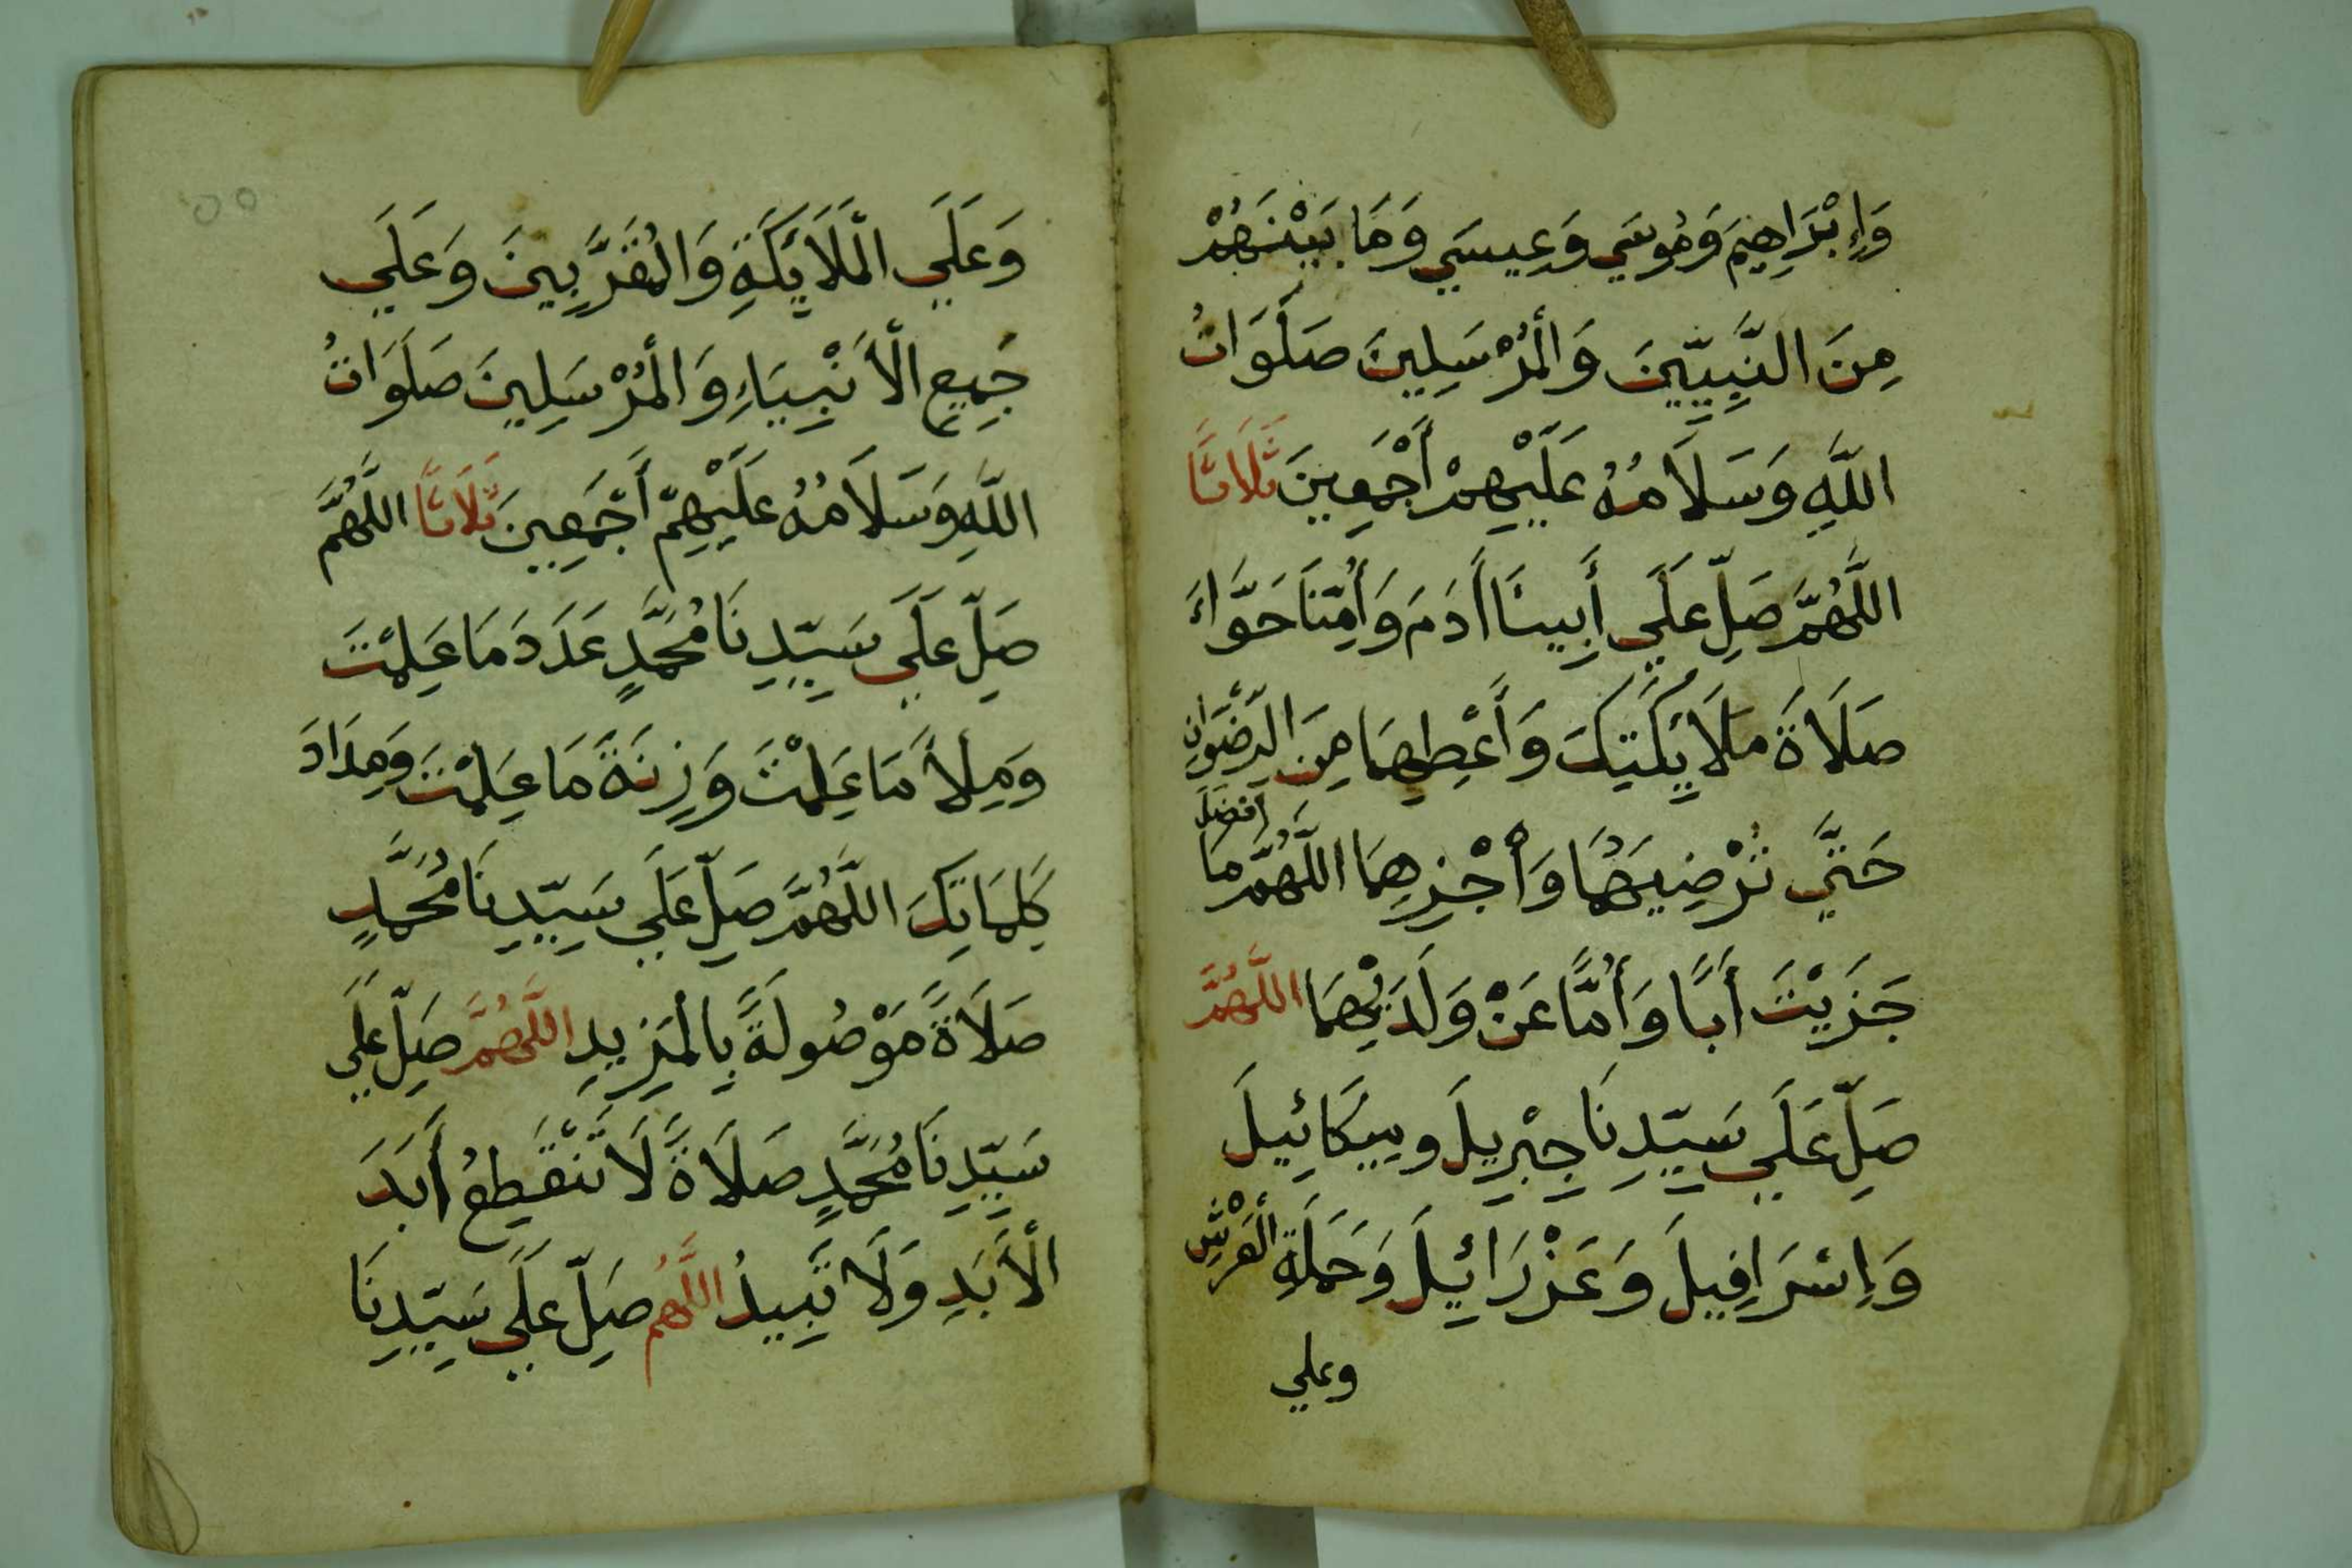 وَإِبْرَاهِيمَ وَمُوسَي وَعِيسَي وَمَا بَيْنَهُمْ
مِنَ النَّبِيِّينَ وَالْمُرْسَلِينَ صَلَوَاتُ
اللَّهِ وَسَلَامُهُ عَلَيْهِمْ أَجْمَعِينَ ثَلَاثًا
اللَّهُمَّ صَلِّ عَلَي أَبِينَا أَدَمَ وَأُمِّنَا حَوَّاءَ
صَلَاةَ مَلَائِكَتِكَ وَأَعْطِهِمَا مِنَ الرِّضْوَانِ
حَتَّي تُرْضِيَهُمَا وَأَجْزِهِمَا اللَّهُمَّ أفضَلَ مَا
جَزَيْتَ أَبًا وَأُمًّا عَنْ وَلَدَيْهِمَا اللَّهُمَّ
صَلِّ عَلَي سَيِّدِنَا جِبْرِيلَ وميكَائِيلَ
وَإِسْرَافِيلَ وَعَزْرَائِيلَ وَحَمَلَةِ الْعَرْشِ
وعلي
٥٥
وَعَلَي الْمَلَائِكَةِ وَالْمُقَرَّبِينَ وَعَلَي
جَمِيعِ الْأَنْبِيَاءِ وَالْمُرْسَلِينَ صَلَوَاتُ
اللَّهِ وَسَلَامُهُ عَلَيْهِمْ أَجْمَعِينَ ثَلَاثًا اللَّهُمَّ
صَلِّ عَلَي سَيِّدِنَا مُحَمَّدٍ عَدَدَ مَا عَلِمْتَ
وَمِلأَ مَا عَلِمْتَ وَزِنَةَ مَا عَلِمْتَ وَمِدَادَ
كَلِمَاتِكَ اللَّهُمَّ صَلِّ عَلَي سَيِّدِنَا مُحَمَّدٍ
صَلَاةً مَوْصُولَةً بِالْمَزِيدِ اللَّهُمَّ صَلِّ عَلَي
سَيِّدِنَا مُحَمَّدٍ صَلَاةً لَا تَنْقَطِعُ أَبَدَ
الْأَبَدِ وَلَا تَبِيدُ اللَّهُمَّ صَلِّ عَلَي سَيِّدِنَا